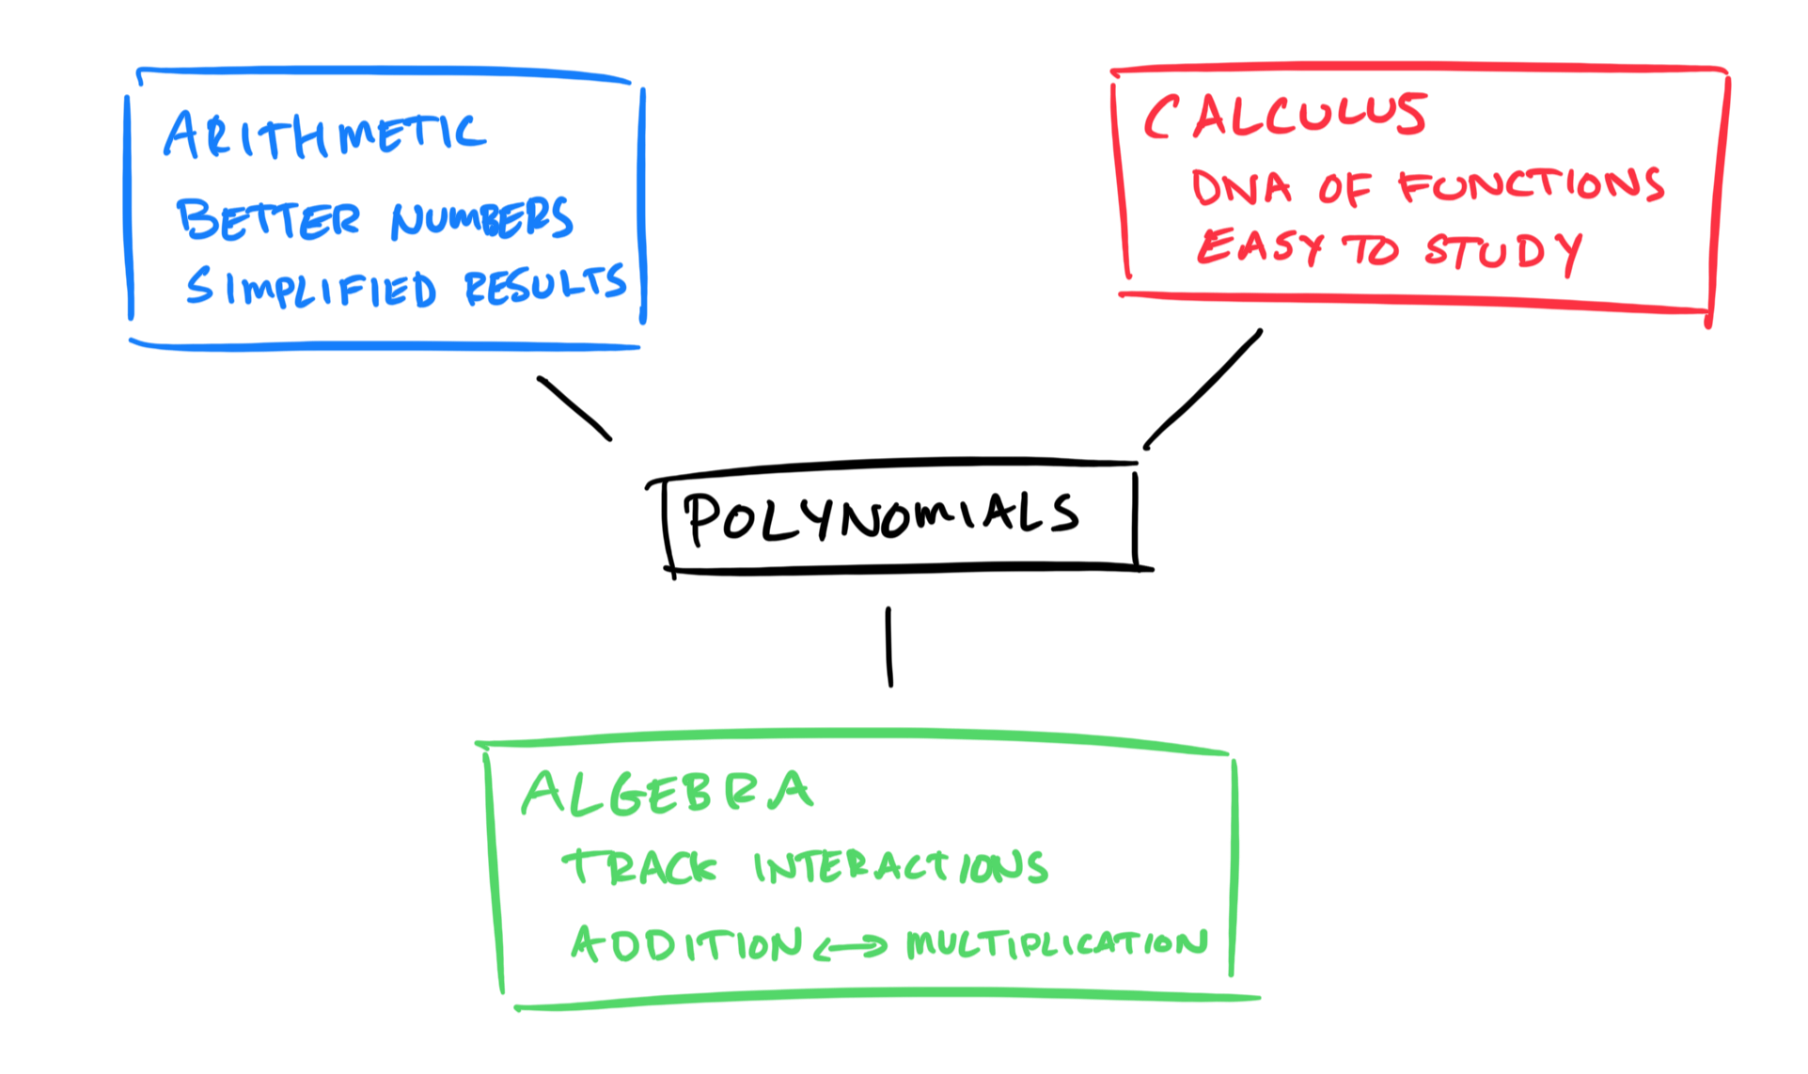 ARITHMETIC
BETTER NUMBERS
SIMPLIFIED RESULTS
CALCULUS
DNA OF FUNCTIONS
EASY TO STUDY
POLYNOMIALS
ALGEBRA
TRACK INTERACTIONS
ADDITION ↔ MULTIPLICATION